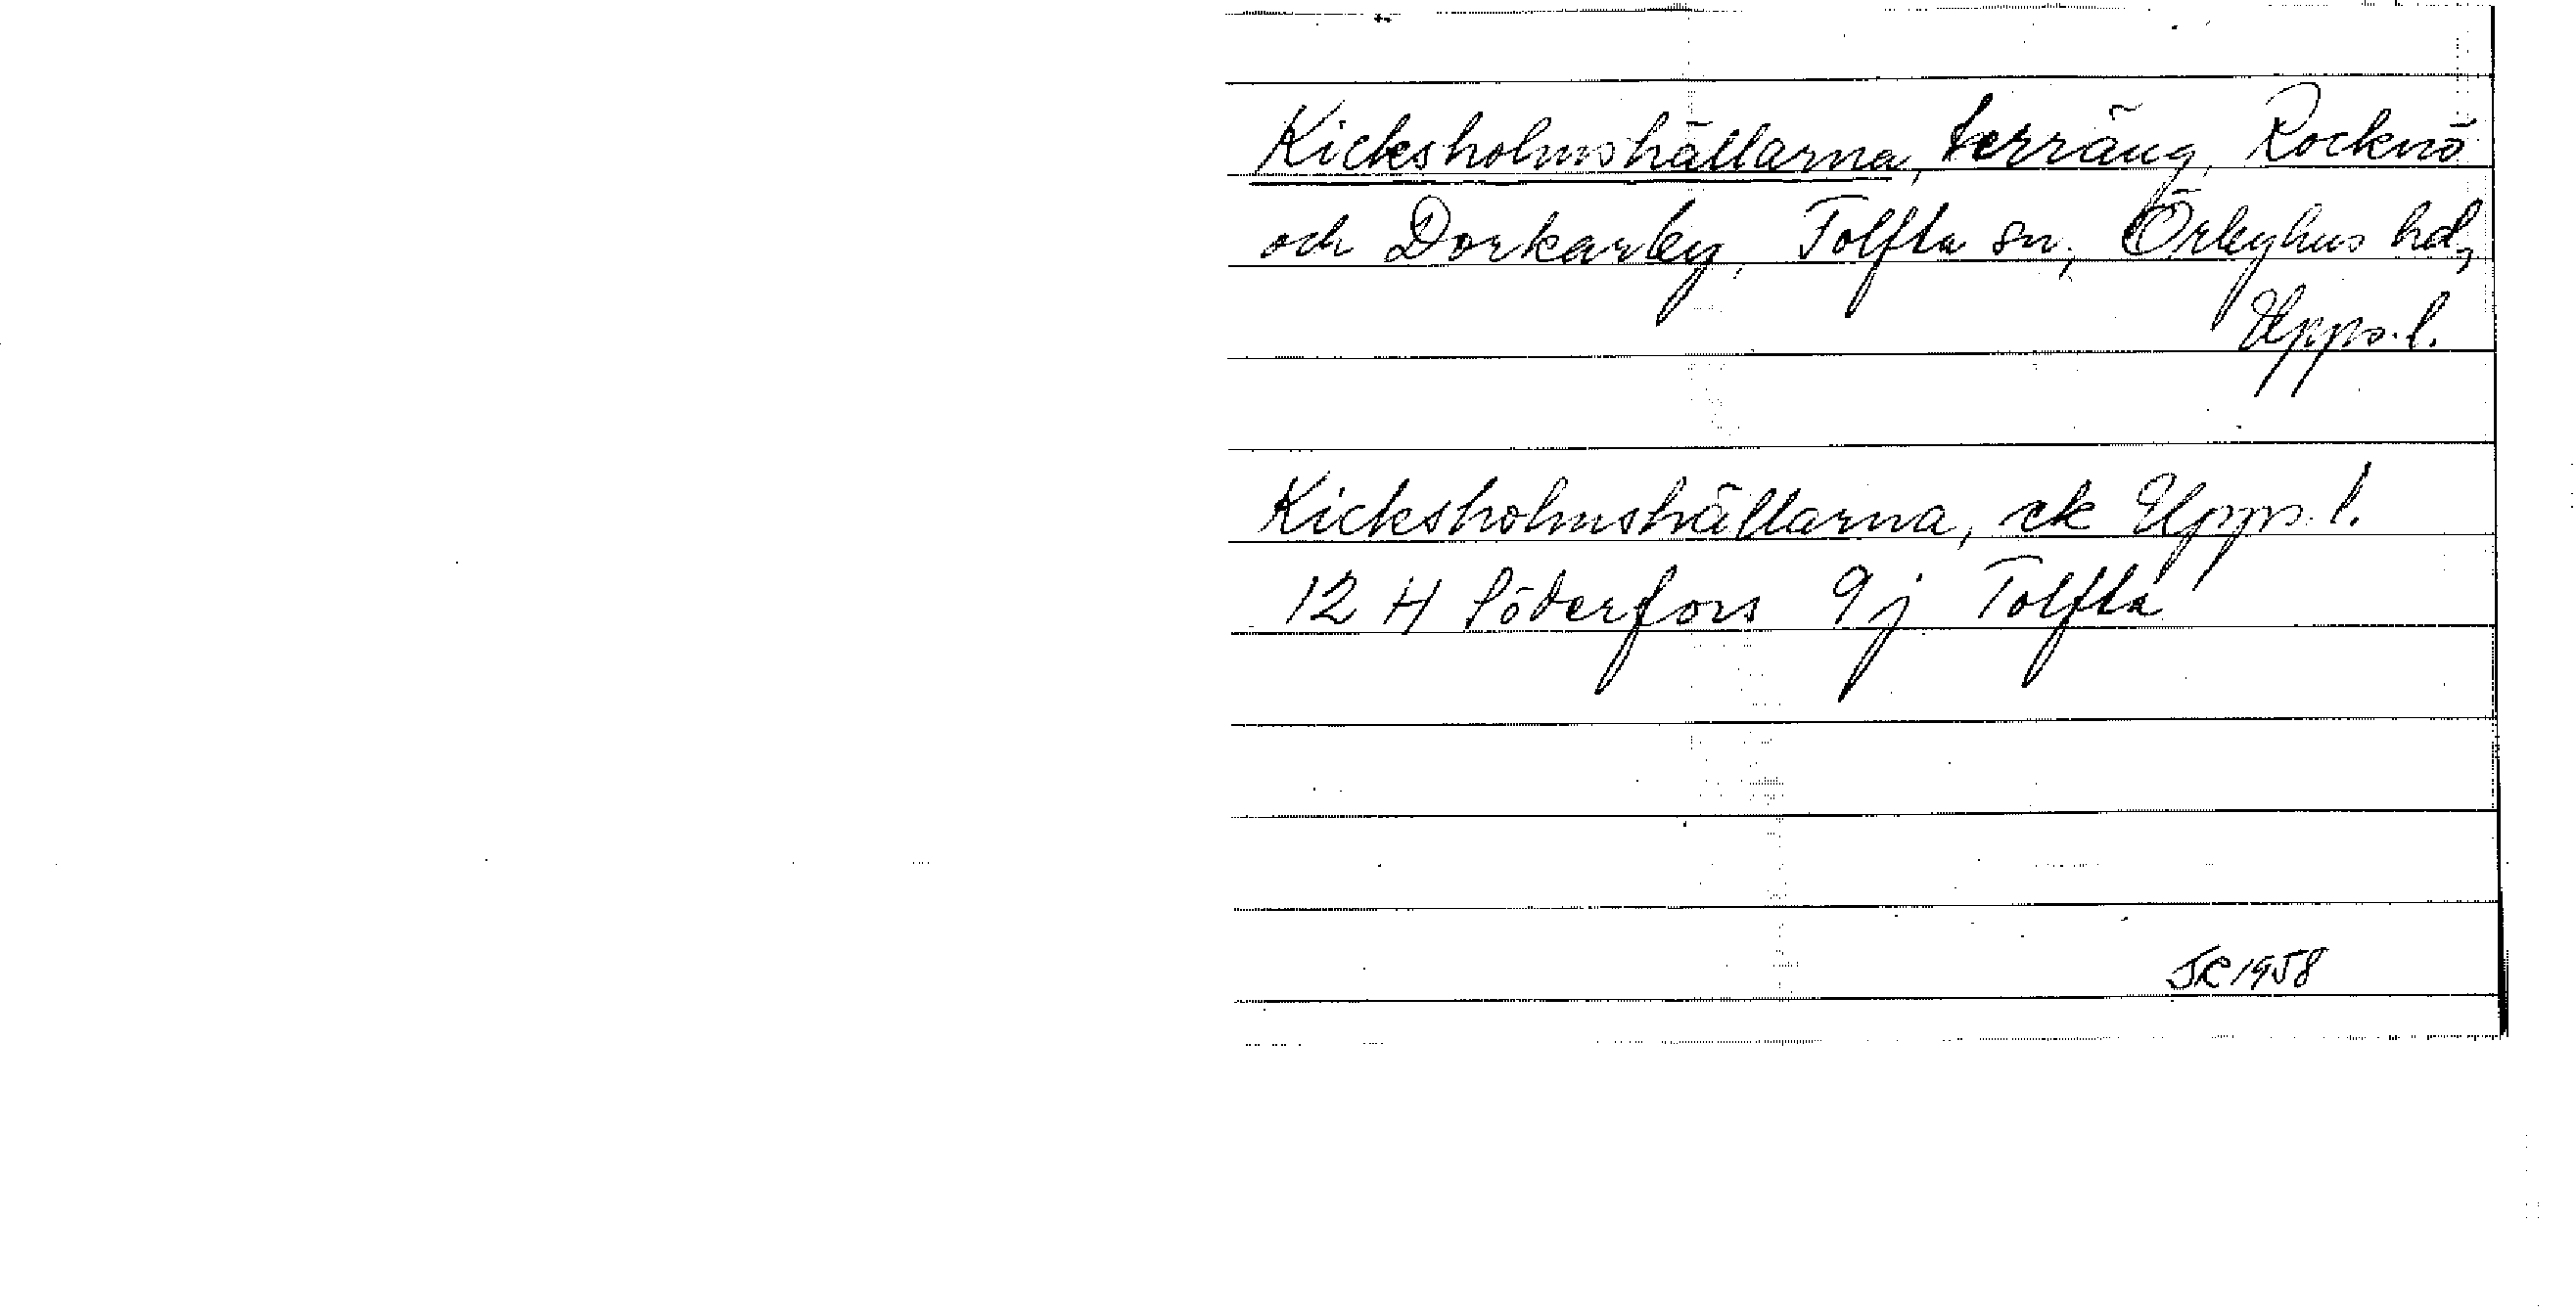 Kicksholmshällarna, terräng, Rocknö
och Dorkarby, Tolfta sn, Örbyhus hd,
Upps. l.
Kicksholmshällarna, ek Upps. l.
12 H Söderfors 9j Tolfta
JR 1958